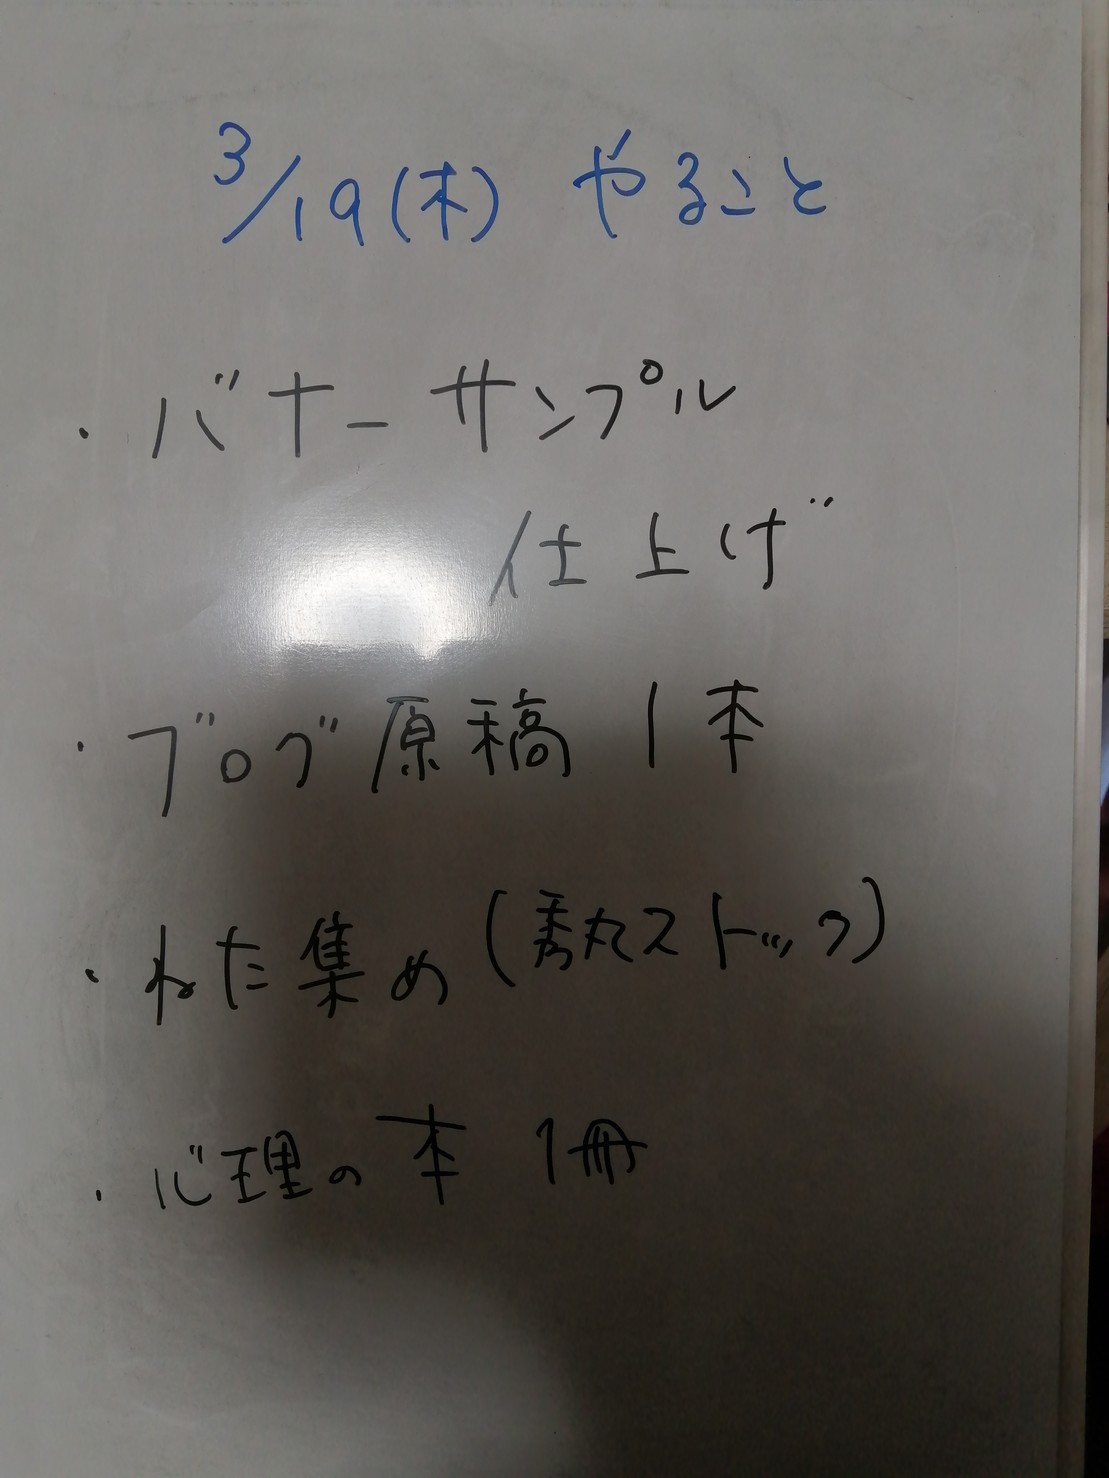 3/19(木) やること
・バナーサンプル
仕上げ
・ブログ原稿 1本
・ねた集め(秀丸ストック)
・心理の本 1冊